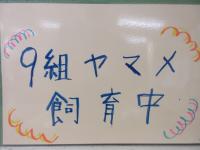 9組ヤマメ
飼育中